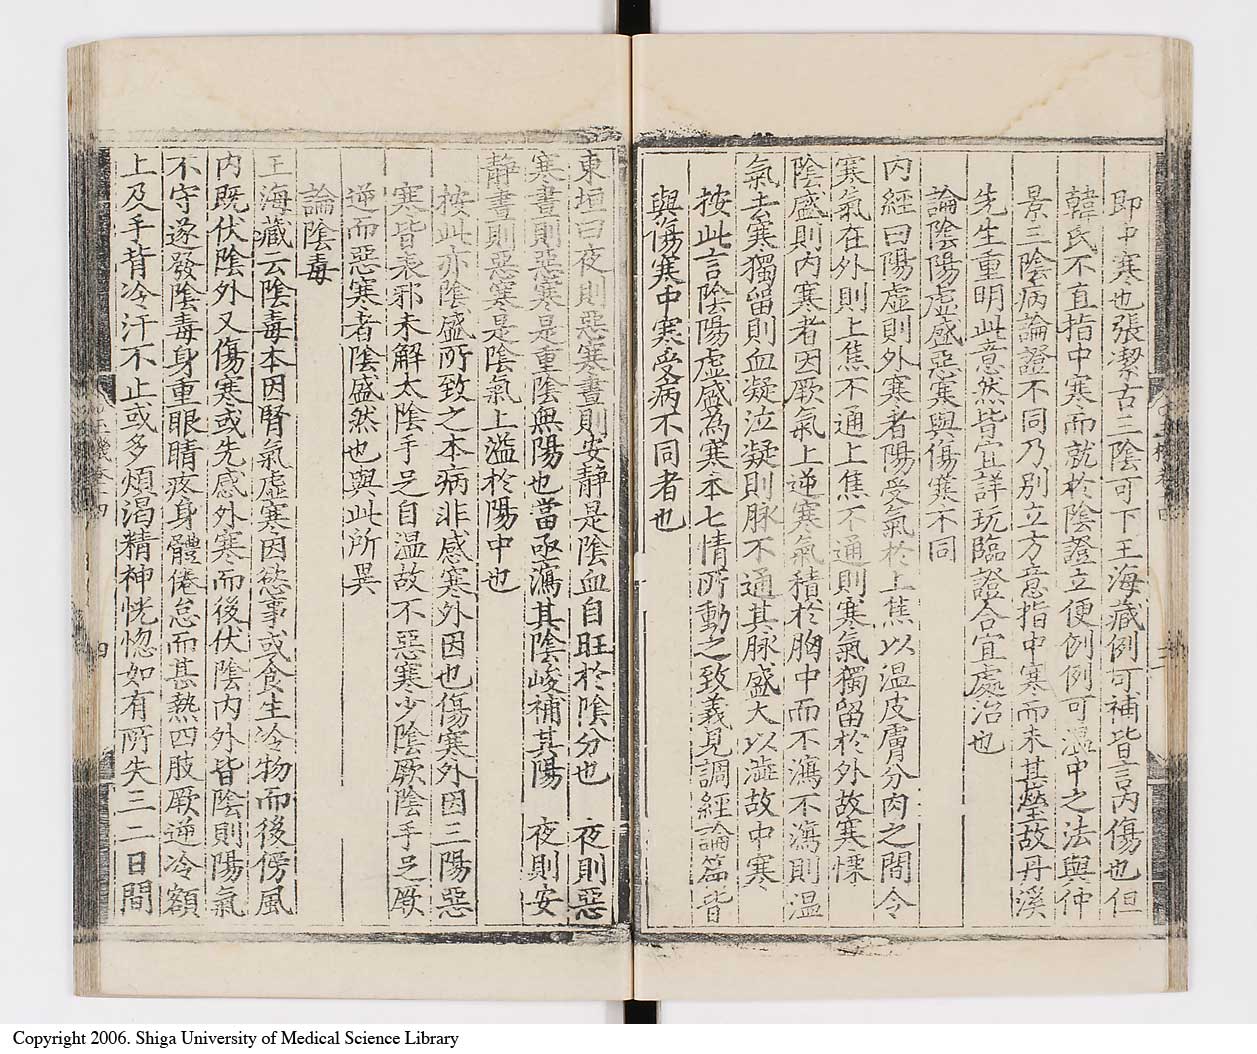 即中寒也張潔古三陰可下王海藏例可補皆言內傷也但
韓氏不直指中寒而就於陰證立便例例可溫中之法與仲
景三陰病論證不同乃別立方意指中寒而未甚瑩故丹溪
先生重明此意然皆宜詳玩臨證合宜處治也
論陰陽虛盛惡寒與傷寒不同
內經曰陽虛則外寒者陽受氣於上焦以温皮膚分肉之間令
寒氣在外則上焦不通上焦不通則寒氣獨留於外故寒慄
陰盛則內寒者因厥氣上逆寒氣積於胸中而不瀉不瀉則溫
氣去寒獨留則血凝泣凝則脉不通其脉盛大以澁故中寒
按此言陰陽虛盛為寒本七情所動之致義見調經論篇皆
與傷寒中寒受病不同者也
東垣曰夜則惡寒晝則安静是陰血自旺於陰分也　夜則惡
寒晝則惡寒是重陰無陽也當亟瀉其陰峻補其陽　夜則安
静晝則惡寒是陰氣上溢於陽中也
按此亦陰盛所致之本病非感寒外因也傷寒外因三陽惡
寒皆表邪未解太陰手足自温故不惡寒少陰厥陰手足厥
逆而惡寒者陰盛然也與此所異
論陰毒
王海藏云陰毒本因腎氣虛寒因慾事或食生冷物而後傍風
內既伏陰外又傷寒或先感外寒而後伏陰內外皆陰則陽氣
不守遂發陰毒身重眼睛疼身體倦怠而甚熱四肢厥逆冷額
上及手背冷汗不止或多煩渴精神恍惚如有所失三二日間
四